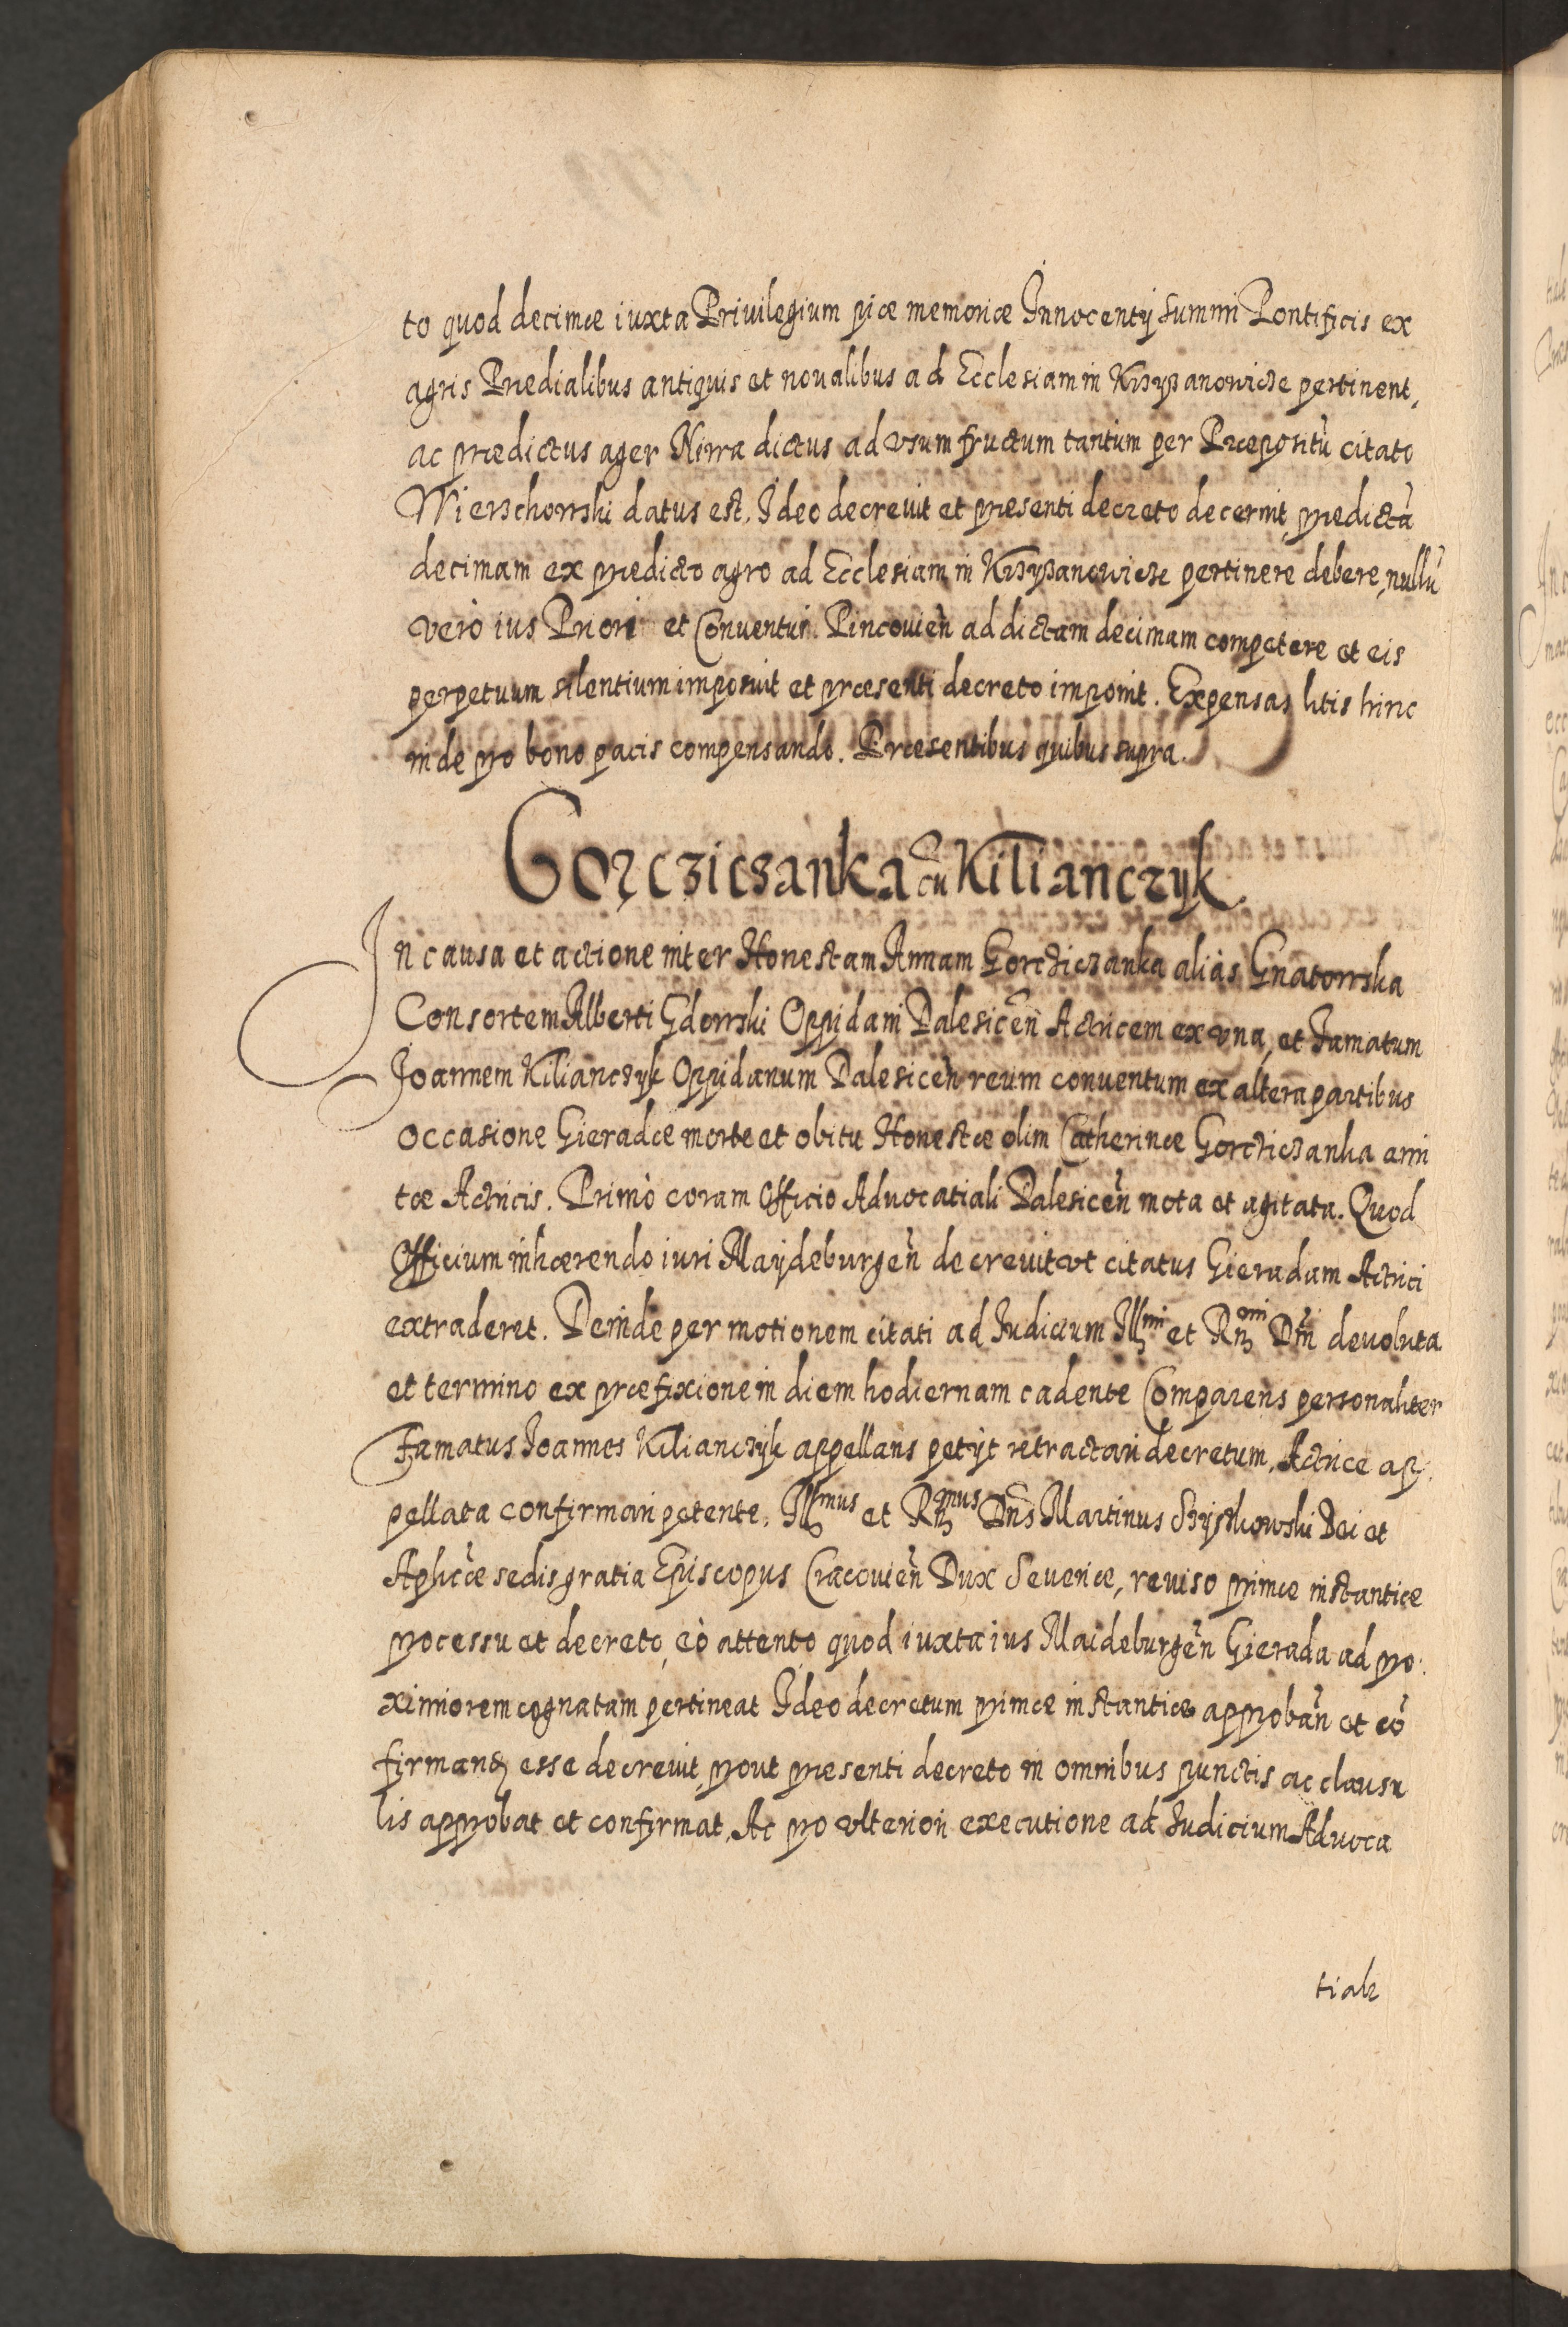 to quod decimæ iuxta Priuilegium piæ memoriæ Innocentÿ Summi Pontificis ex
agris Prædialibus antiquis et noualibus ad Ecclesiam in Krzyżanowicze pertinent,
ac prædictus ager Niwa dictus ad vsum fructum tantùm per Præpositũ citato
Wierzchowski datus est, Ideo decrevit et præsenti decreto decernit, prædictã
decimam ex prædicto agro ad Ecclesiam in Krzyżanowicze pertinere debere, nullũ
verò ius Priori et Conventui Pincovien̄ ad dictam decimam competere et eis
perpetuum silentium imposuit et præsenti decreto imponit. Expensas litis hinc
inde pro bono pacis compensando. Præsentibus quibus supra.
Gorczicżanka cũ Kilianczyk.
In causa et actione inter Honestam Annam Gorcżiczanka aliàs Gnatowska
Consortem Alberti Gdowski Oppidani Dalesicen̄ Actricem ex vna, et Famatum
Joannem Kilianczyk Oppidanum Dalesicen̄ reum conventum ex altera partibus
occasione Gieradæ morte et obitu Honestæ olim Catherinæ Gorcżiczanka ami
tæ Actricis. Primò coram Officio Advocatiali Dalesicen̄ mota et agitata. Quod
Officium inhærendo iuri Maÿdeburgen̄ decrevit vt citatus Gieradam Actrici
extraderet. Deinde per motionem citati ad Iudicium Illmi et Rmi Dni devoluta
et termino ex præfixione in diem hodiernam cadente Comparens personaliter
Famatus Joannes Kilianczyk appellans petÿt retractari decretum, Actrice ap
pellata confirmari petente. Illmus et Rmus Dns Martinus Szyszkowski Dei et
Aplicæ sedis gratia Episcopus Cracovien̄ Dux Severiæ, reviso primæ instantiæ
processu et decreto, eò attento quod iuxta ius Maideburgen̄ Gierada ad pro
ximiorem cognatam pertineat Ideo decretum primæ instantiæ approban̄ et cõ
firmand esse decrevit, prout præsenti decreto in omnibus punctis ac clausu
lis approbat et confirmat, Ac pro vlteriori executione ad Iudicium Advoca
tiale